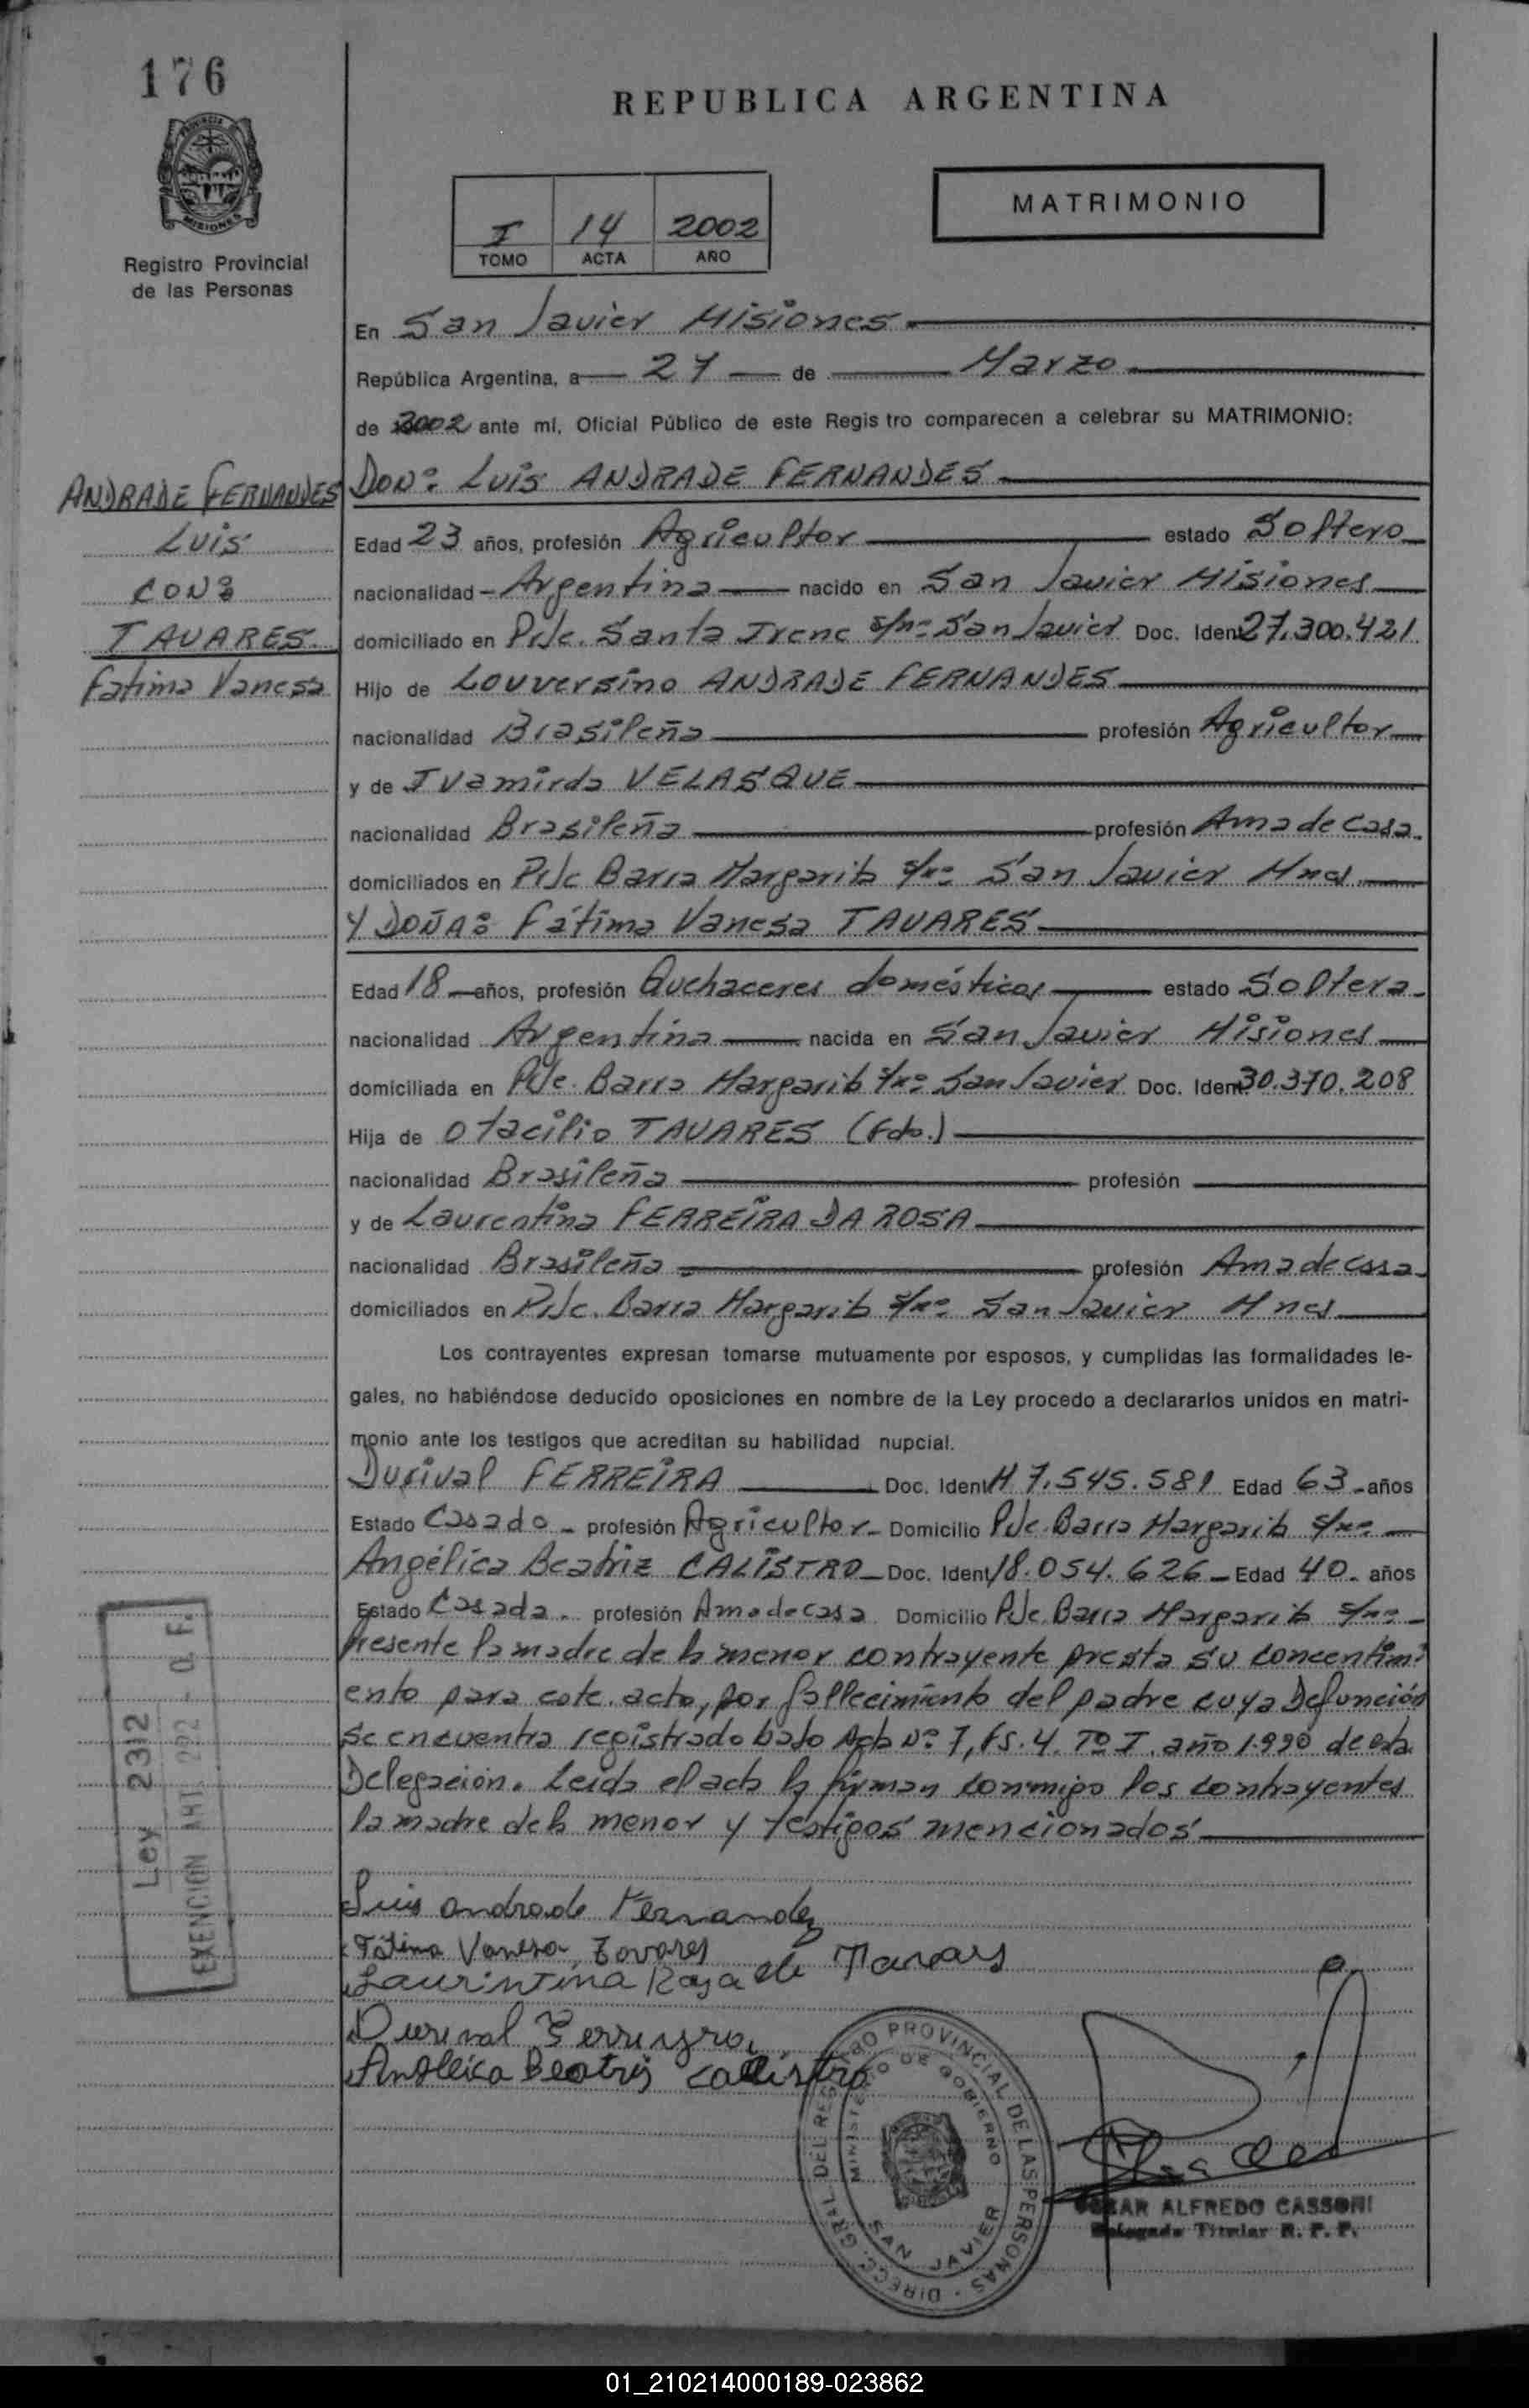 176
REPUBLICA ARGENTINA
MATRIMONIO
I 14 2002
TOMO ACTA AÑO
PROVINCIA
MISIONES
Registro Provincial
de las Personas
En San Javier Misiones.
República Argentina, a 27 de Marzo
de 2002 ante mí, Oficial Público de este Regis tro comparecen a celebrar su MATRIMONIO:
ANDRADE FERNANDES
Luis
CON:
TAVARES
Fatima Vanesa
DON: Luis ANDRADE FERNANDES
Edad 23 años, profesión Agricultor estado Soltero
nacionalidad Argentina nacido en San Javier Misiones
domiciliado en Pje. Santa Irene s/nº San Javier Doc. Ident 27.300.421
Hijo de Louversino ANDRADE FERNANDES
nacionalidad Brasileña profesión Agricultor
y de Ivamirda VELASQUE
nacionalidad Brasileña profesión Ama de casa.
domiciliados en Pje Barra Margarita s/nº San Javier Mnes
Y DOÑA: Fátima Vanesa TAVARES
Edad 18 años, profesión Quehaceres domésticos estado Soltera
nacionalidad Argentina nacida en San Javier Misiones
domiciliada en Pje. Barra Margarita s/nº San Javier Doc. Ident 30.370.208
Hija de Otacilio TAVARES (Fdo.)
nacionalidad Brasileña profesión
y de Laurentina FERREIRA DA ROSA
nacionalidad Brasileña profesión Ama de casa
domiciliados en Pje. Barra Margarita s/nº San Javier Mnes
Los contrayentes expresan tomarse mutuamente por esposos, y cumplidas las formalidades le-
gales, no habiéndose deducido oposiciones en nombre de la Ley procedo a declararlos unidos en matri-
monio ante los testigos que acreditan su habilidad nupcial.
Durival FERREIRA Doc. Ident M 7.545.581 Edad 63 años
Estado Casado profesión Agricultor Domicilio Pje. Barra Margarita s/nº
Angélica Beatriz CALISTRO Doc. Ident 18.054.626 Edad 40 años
Estado Casada profesión Ama de casa Domicilio Pje. Barra Margarita s/nº
Presente la madre de la menor contrayente presta su concentimi
ento para este acto, por fallecimiento del padre cuya Defunción
se encuentra registrado bajo Acta Nº 7, Fs. 4. Tº I. año 1.990 de esta
Delegación. Leída el acta la firman conmigo los contrayentes
la madre de la menor y testigos mencionados
Ley 2312
EXENCION ART. 292 - Q F.
Luis andrade Fernandez
Fátima Vanesa Tavares
Laurintina Roza de Tavares
Durival Ferreyra
Angelica Beatris Calistro
DIRECC. GRAL. DEL REGISTRO PROVINCIAL DE LAS PERSONAS
MINISTERIO DE GOBIERNO
SAN JAVIER
OSCAR ALFREDO CASSONI
Delegado Titular R. P. P.
01_210214000189-023862